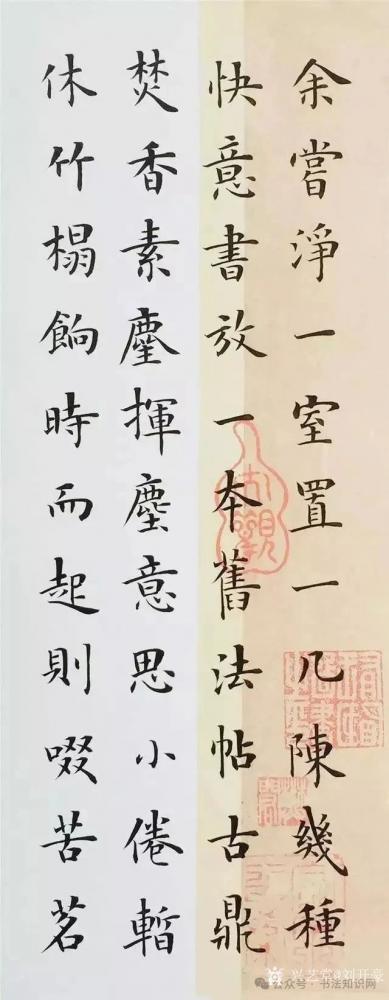 余嘗淨一室置一几陳幾種
快意書放一本舊法帖古鼎
焚香素麈揮塵意思小倦暫
休竹榻餉時而起則啜苦茗
兴艺堂@刘开豪
公众号·书法知识网